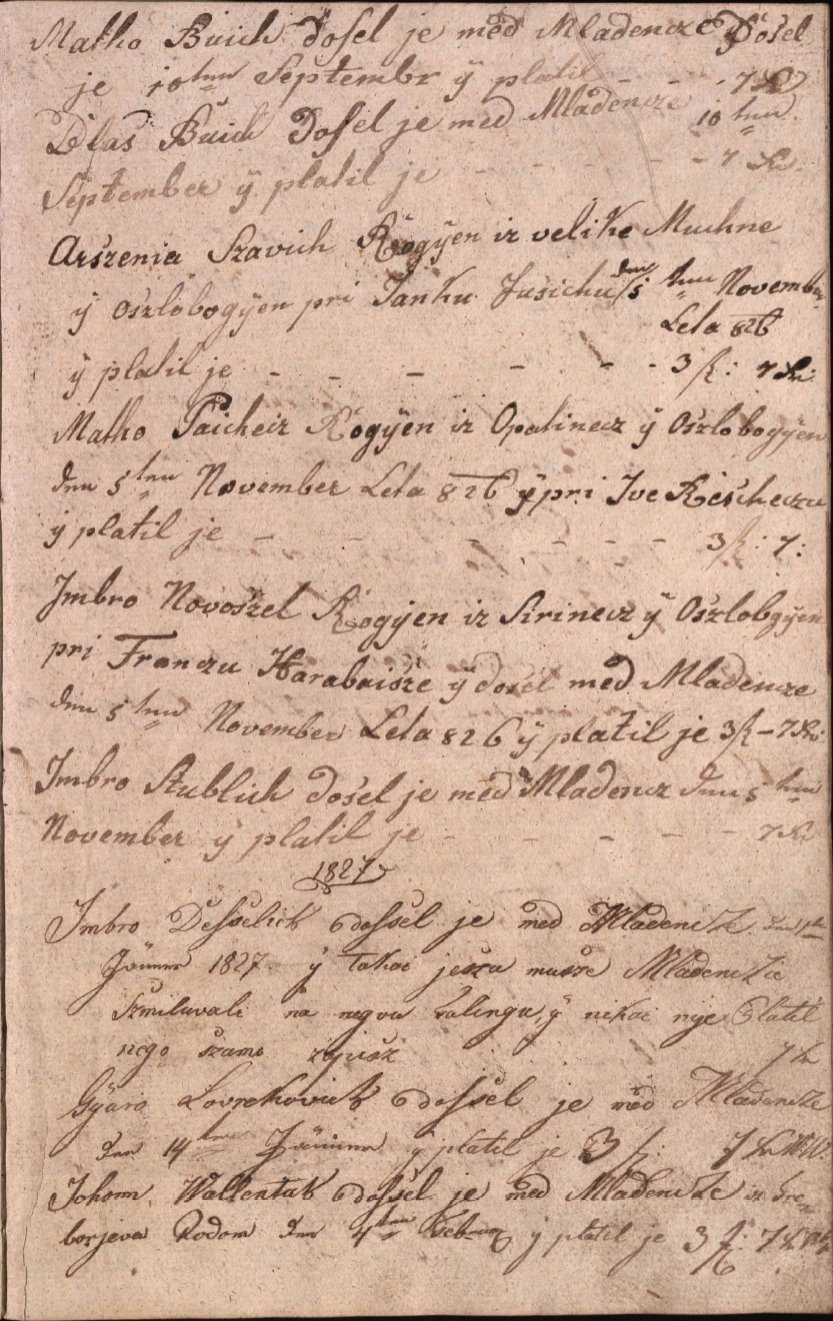 Matho Buich Dosel je med Mladencze Dosel
je 10ten Septembr ÿ platil - - - 7 Kr
Blas Buich Dosel je med Mladencze 10 ten
September ÿ platil je - - - - - 7 Kr
Arszenia Szavich Rogÿen iz velike Muchne
ÿ Oszlobogÿen pri Janku Jusichu den 5 ten November
Leta 826
ÿ platil je - - - - - - 3 f: 7 Kr
Matho Paicheiz Rogÿen iz Opatinecz ÿ Oszlobogÿen
den 5 ten November Leta 826 ÿ pri Ive
ÿ platil je - - - - - - 3 f: 7:
Jmbro Novoszel Rogÿen iz Sirinecz ÿ Oszlobgÿen
pri Franczu Harabaisze ÿ dosel med Mladencze
den 5 ten November Leta 826 ÿ platil je 3 f - 7 Kr
Jmbro Stublich Dosel je med Mladencz den 5 ten
November ÿ platil je - - - - - 7 Kr
1827
Jmbro Desselich dossel je med Mladencze den
Jänner 1827 ÿ takai jesza musze Mladenczie
Szmiluvali na negvu ÿ nikai nije Platil
nego szamo 7 Kr
Gÿuro Lovrekovich dossel je med Mladencze
den 14 ten Jänner ÿ platil je 3 f: 7 Kr WW:
Johann Wallentak dossel je med Mladencze iz Gre-
borjeva Rodom den 4 ten ÿ platil je 3 f: 7 Kr